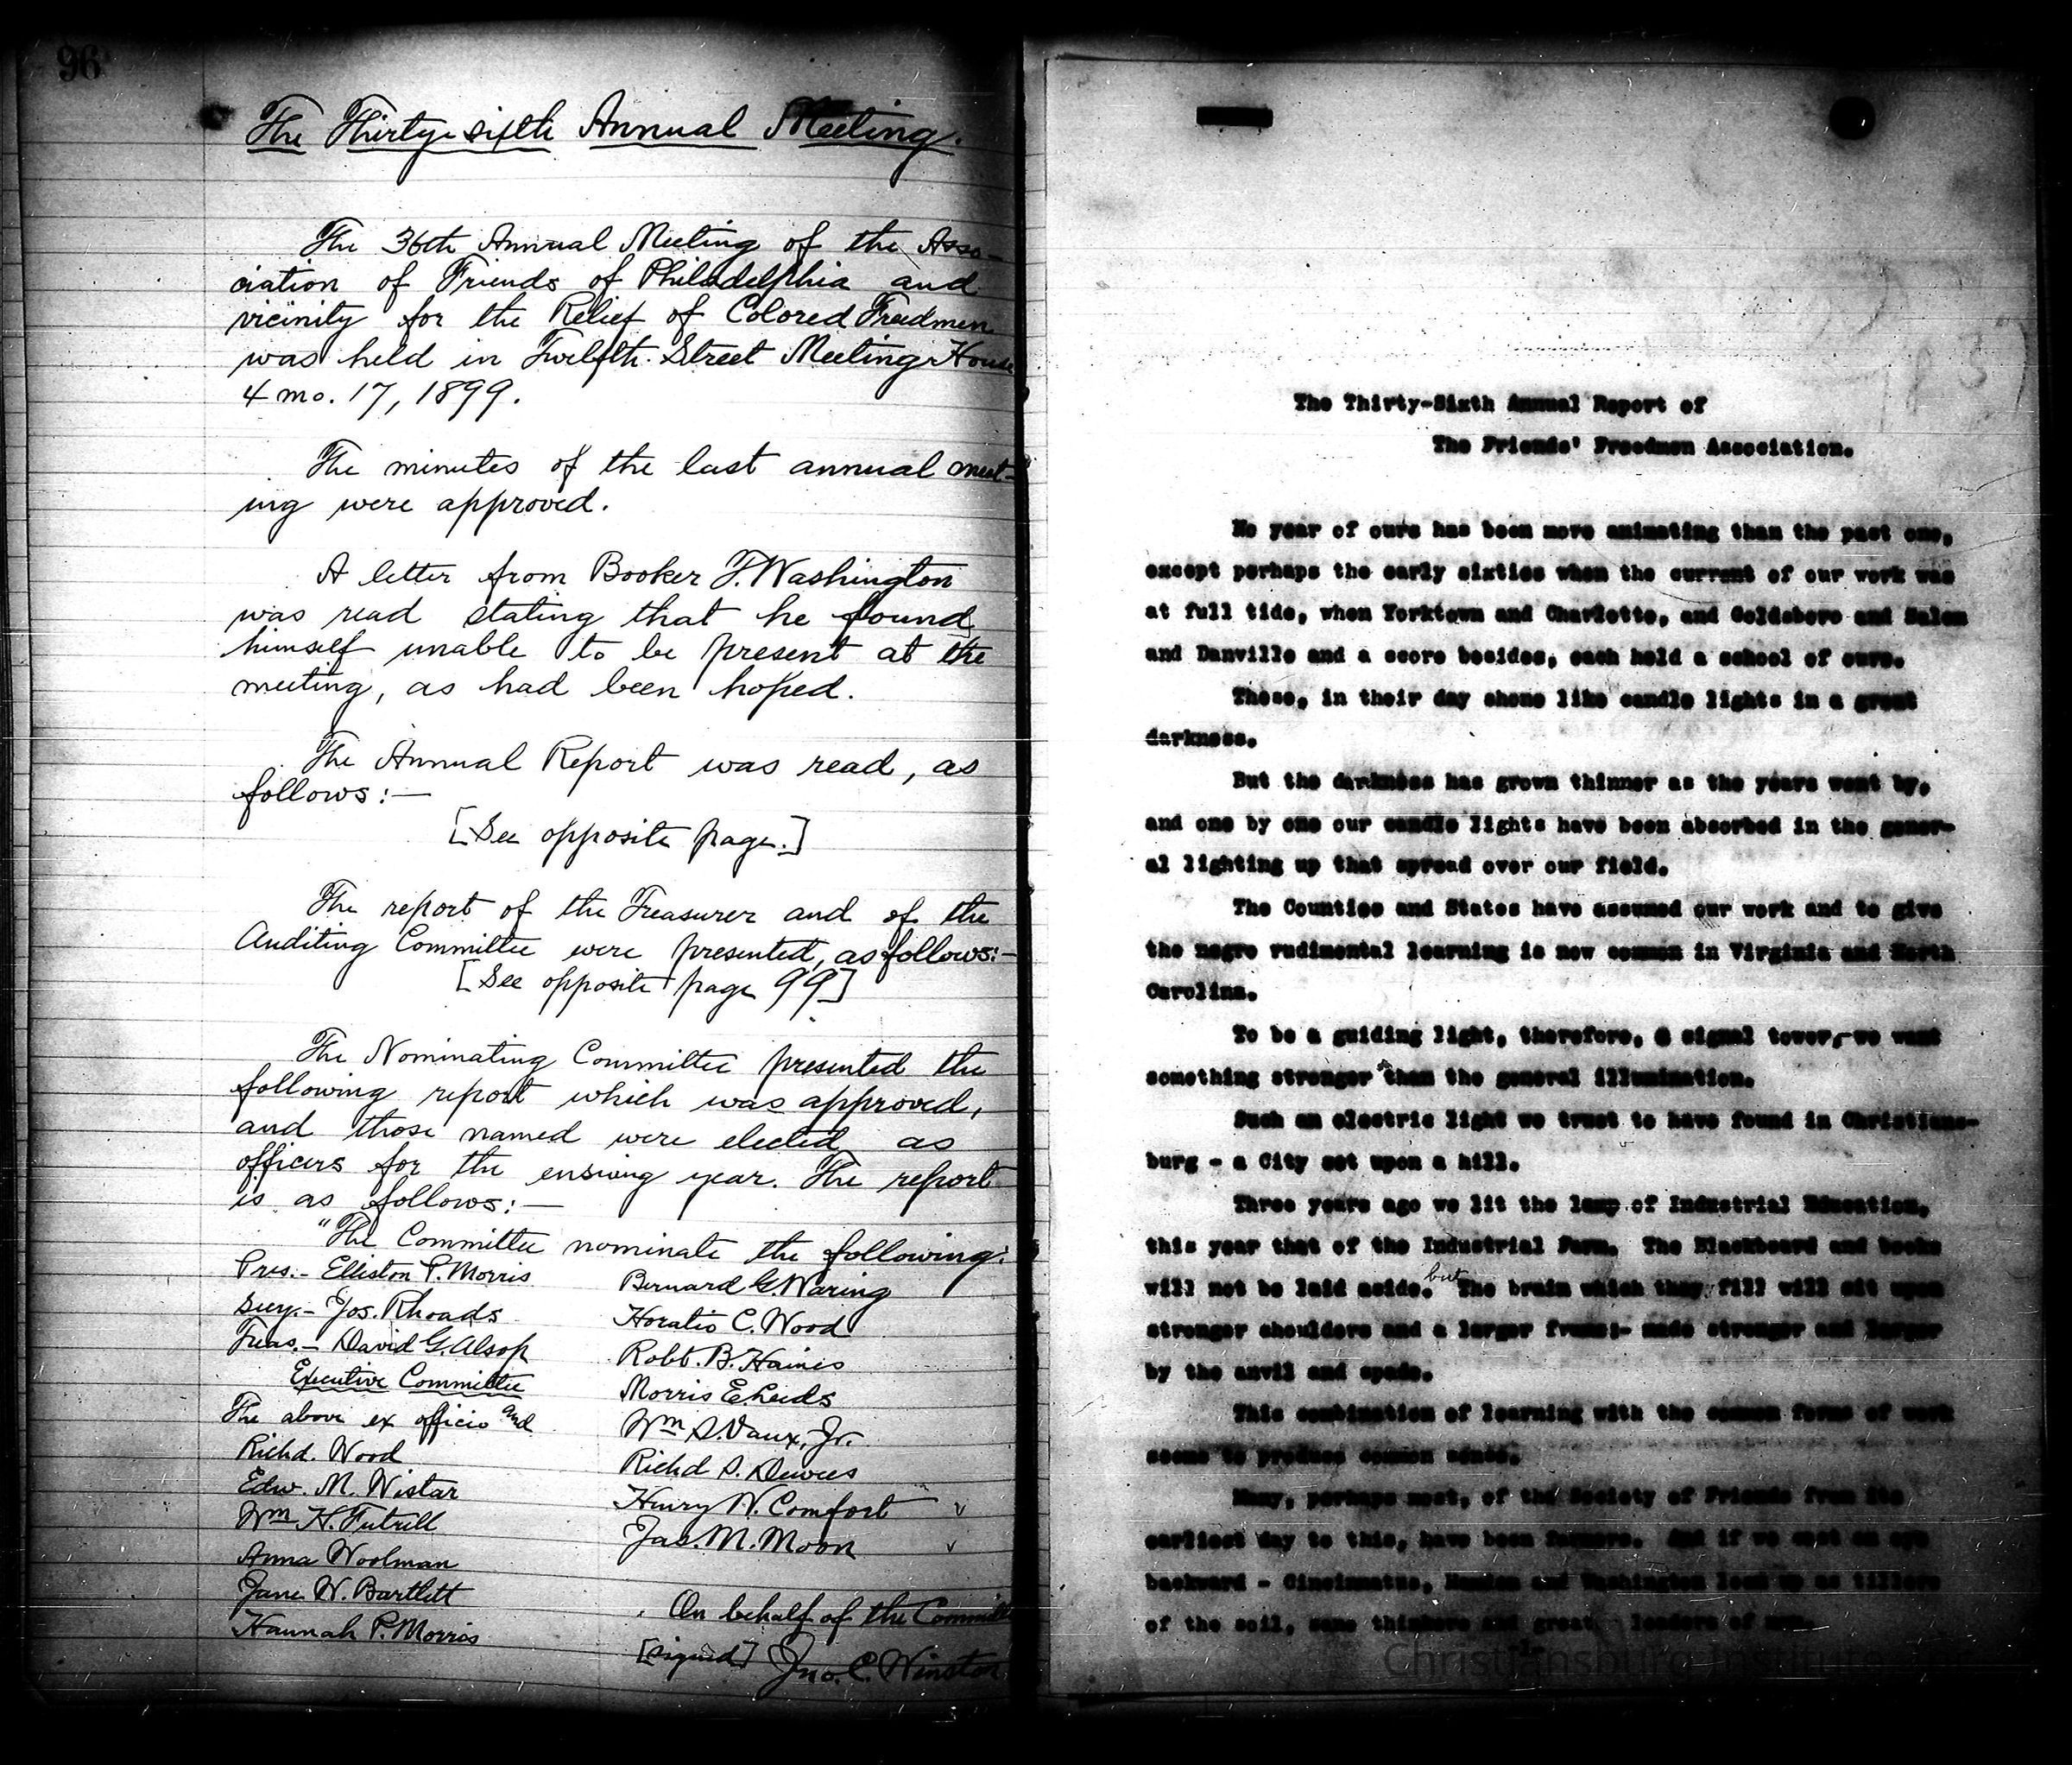 96
The Thirty-sixth Annual Meeting.
The 36th Annual Meeting of the Asso-
ciation of Friends of Philadelphia and
vicinity for the Relief of Colored Freedmen
was held in Twelfth Street Meeting House
4 mo. 17, 1899.
The minutes of the last annual meet-
ing were approved.
A letter from Booker T. Washington
was read stating that he found
himself unable to be present at the
meeting, as had been hoped.
The Annual Report was read, as
follows:—
[See opposite page.]
The report of the Treasurer and of the
Auditing Committee were presented, as follows:—
[See opposite page 99]
The Nominating Committee presented the
following report which was approved,
and those named were elected as
officers for the ensuing year. The report
is as follows:—
"The Committee nominate the following:
Pres.- Elliston P. Morris
Secy.- Jos. Rhoads
Treas.- David G. Alsop
Executive Committee
The above ex officio and
Richd. Wood
Edw. M. Wistar
Wm H. Futrell
Anna Woolman
Jane W. Bartlett
Hannah P. Morris
Bernard G. Waring
Horatio C. Wood
Robt. B. Haines
Morris E. Leeds
Wm S. Vaux, Jr.
Richd S. Dewees
Henry W. Comfort v
Jas. M. Moon v
On behalf of the Committee
[signed] Jno. C. Winston
The Thirty-Sixth Annual Report of
The Friends' Freedmen Association.
No year of ours has been more animating than the past one,
except perhaps the early sixties when the current of our work was
at full tide, when Yorktown and Charlotte, and Goldsboro and Salem
and Danville and a score besides, each held a school of ours.
These, in their day shone like candle lights in a great
darkness.
But the darkness has grown thinner as the years went by,
and one by one our candle lights have been absorbed in the gener-
al lighting up that spread over our field.
The Counties and States have assumed our work and to give
the negro rudimental learning is now common in Virginia and North
Carolina.
To be a guiding light, therefore, a signal tower,-we want
something stronger than the general illumination.
Such an electric light we trust to have found in Christians-
burg - a City set upon a hill.
Three years ago we lit the lamp of Industrial Education,
this year that of the Industrial Farm. The Blackboard and books
will not be laid aside. but The brain which they fill will sit upon
stronger shoulders and a larger frame;- made stronger and larger
by the anvil and spade.
This combination of learning with the common forms of work
seems to produce common sense.
Many, perhaps most, of the Society of Friends from its
earliest day to this, have been farmers. And if we cast an eye
backward - Cincinnatus, Hamden and Washington loom up as tillers
of the soil, sane thinkers and great leaders of men.
-1-
Christiansburg Institute